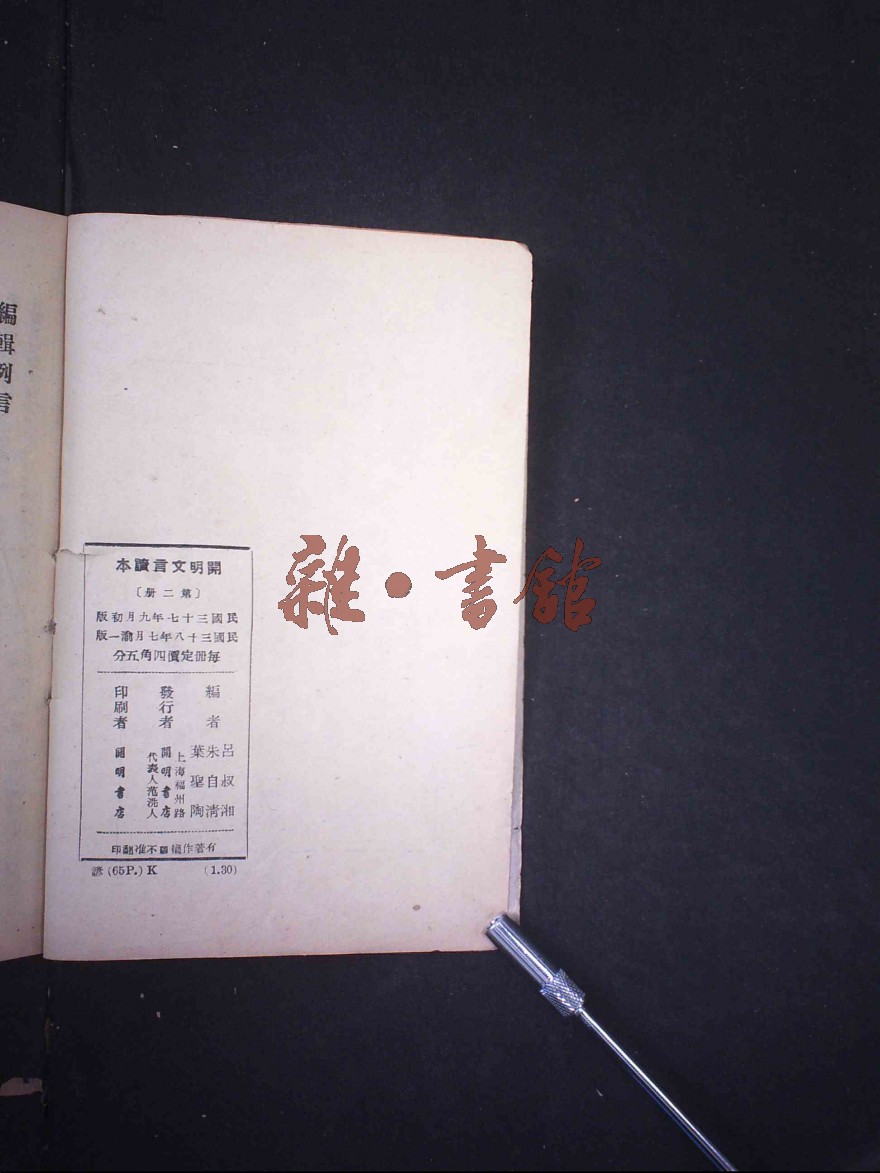 編輯例言
開明文言讀本
〔第二册〕
民國三十七年九月初版
民國三十八年七月渝一版
每冊定價四角五分
編者
呂叔湘
朱自清
葉聖陶
發行者
上海福州路
開明書店
代表人范洗人
印刷者
開明書店
有著作權不准翻印
諺 (65P.) K (1.30)
雜•書館